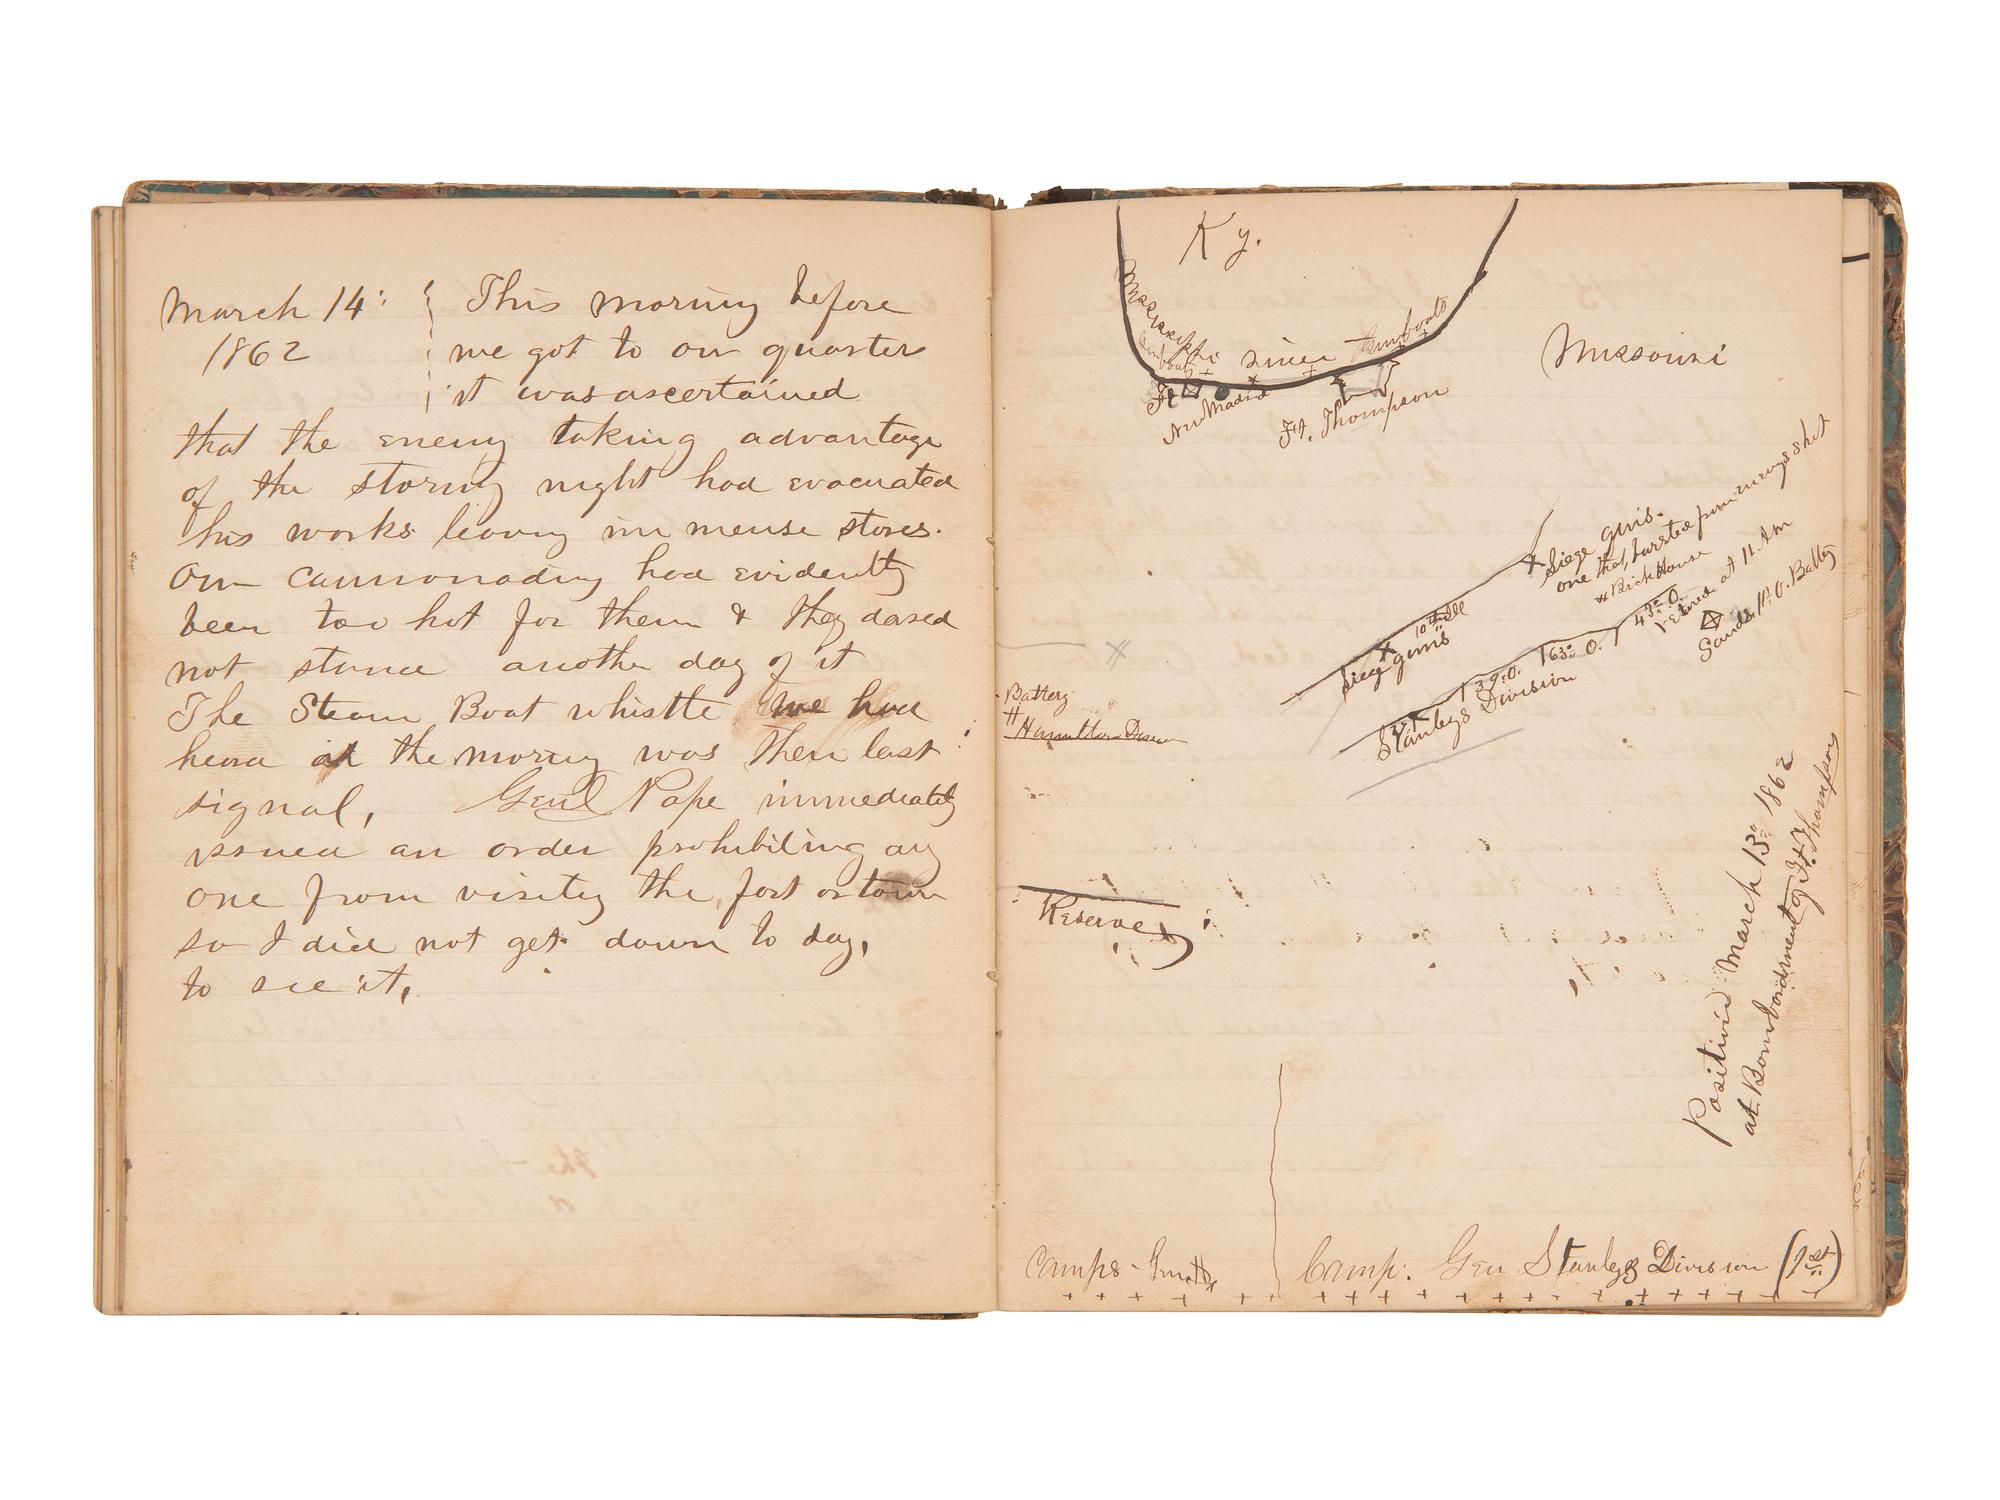 March 14: This morning before
1862 we got to our quarters
it was ascertained
that the enemy taking advantage
of the stormy night had evacuated
his works leaving immense stores.
Our cannonading had evidently
been too hot for them & they dared
not stand another day of it
The Steam Boat whistle we had
heard at the morning was their last
signal, Genl Pope immediately
issued an order prohibiting any
one from visitig the fort or town
so I did not get down to day,
to see it,
Ky.
Mississippi river Gunboats
Gunboats
Missouri
Ft
N Madrid
Ft. Thompson
Siege guns.
one that bursted from enemys shot
Brick House
10th Ill
Sieg guns
43d O.
retired at 11 A m
Sands 11th O. Battery
63d O.
39 O.
Stanleys Division
Battery
Hamiltons Division
Reserve
Position March 13th 1862
at Bombardment of Ft. Thompson
Camps - Gen
Camp. Gen Stanleys Division (1st)